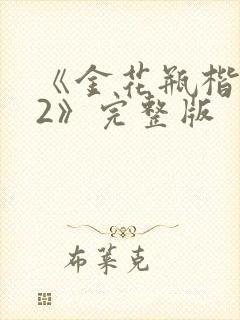 《金花瓶楷
2》完整版
布莱克